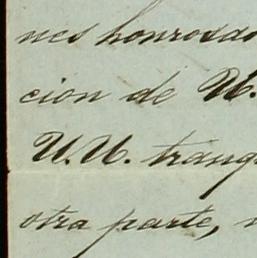 nes honrosas
cion de U.
U.U. tranq
otra parte,